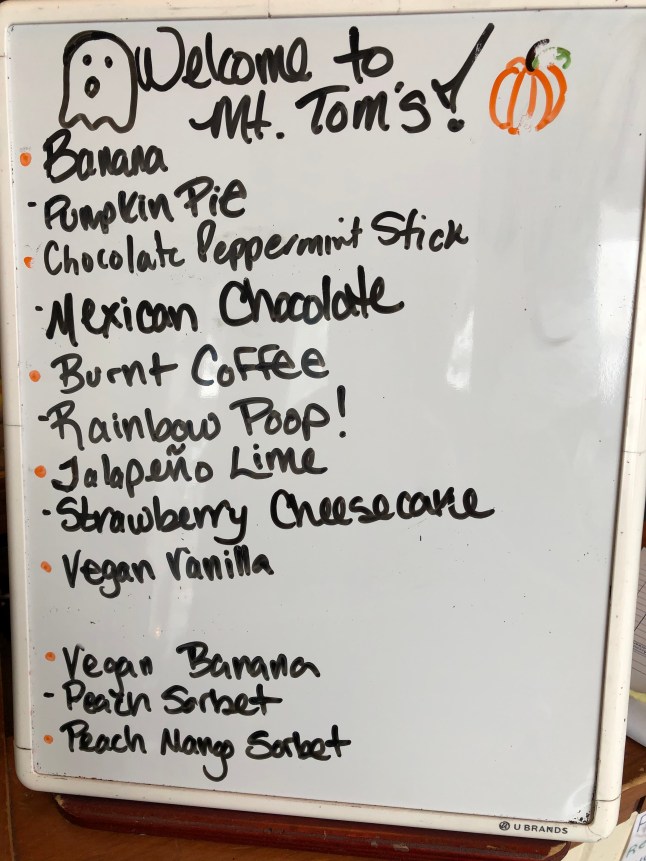 Welcome to
Mt. Tom's!
• Banana
- Pumpkin Pie
• Chocolate Peppermint Stick
- Mexican Chocolate
• Burnt Coffee
- Rainbow Poop!
• Jalapeño Lime
- Strawberry Cheesecake
• Vegan Vanilla
• Vegan Banana
- Peach Sorbet
• Peach Mango Sorbet
U BRANDS